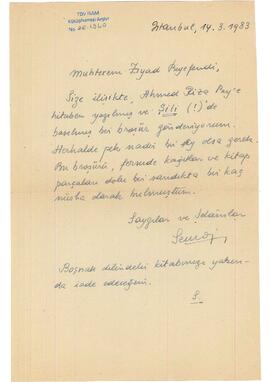 TDV İSAM
Kütüphanesi Arşivi
No 2E.1360
Istanbul, 14.3.1983
Muhterem Ziyad Beyefendi,
Size ilişikte, Ahmed Rıza Bey'e
hitaben yazılmış ve Şili (!)'de
basılmış bir broşür gönderiyorum.
Herhalde pek nadir bir şey olsa gerek.
Bu broşürü, forunde kağıtları ve kitap
parçaları dolu bir sandıkta bir kaç
nüsha olarak bulmuştum.
Saygılar ve selamlar
Boşnak dilindeki kitabınızı yakın-
da iade edeceğim.
S.